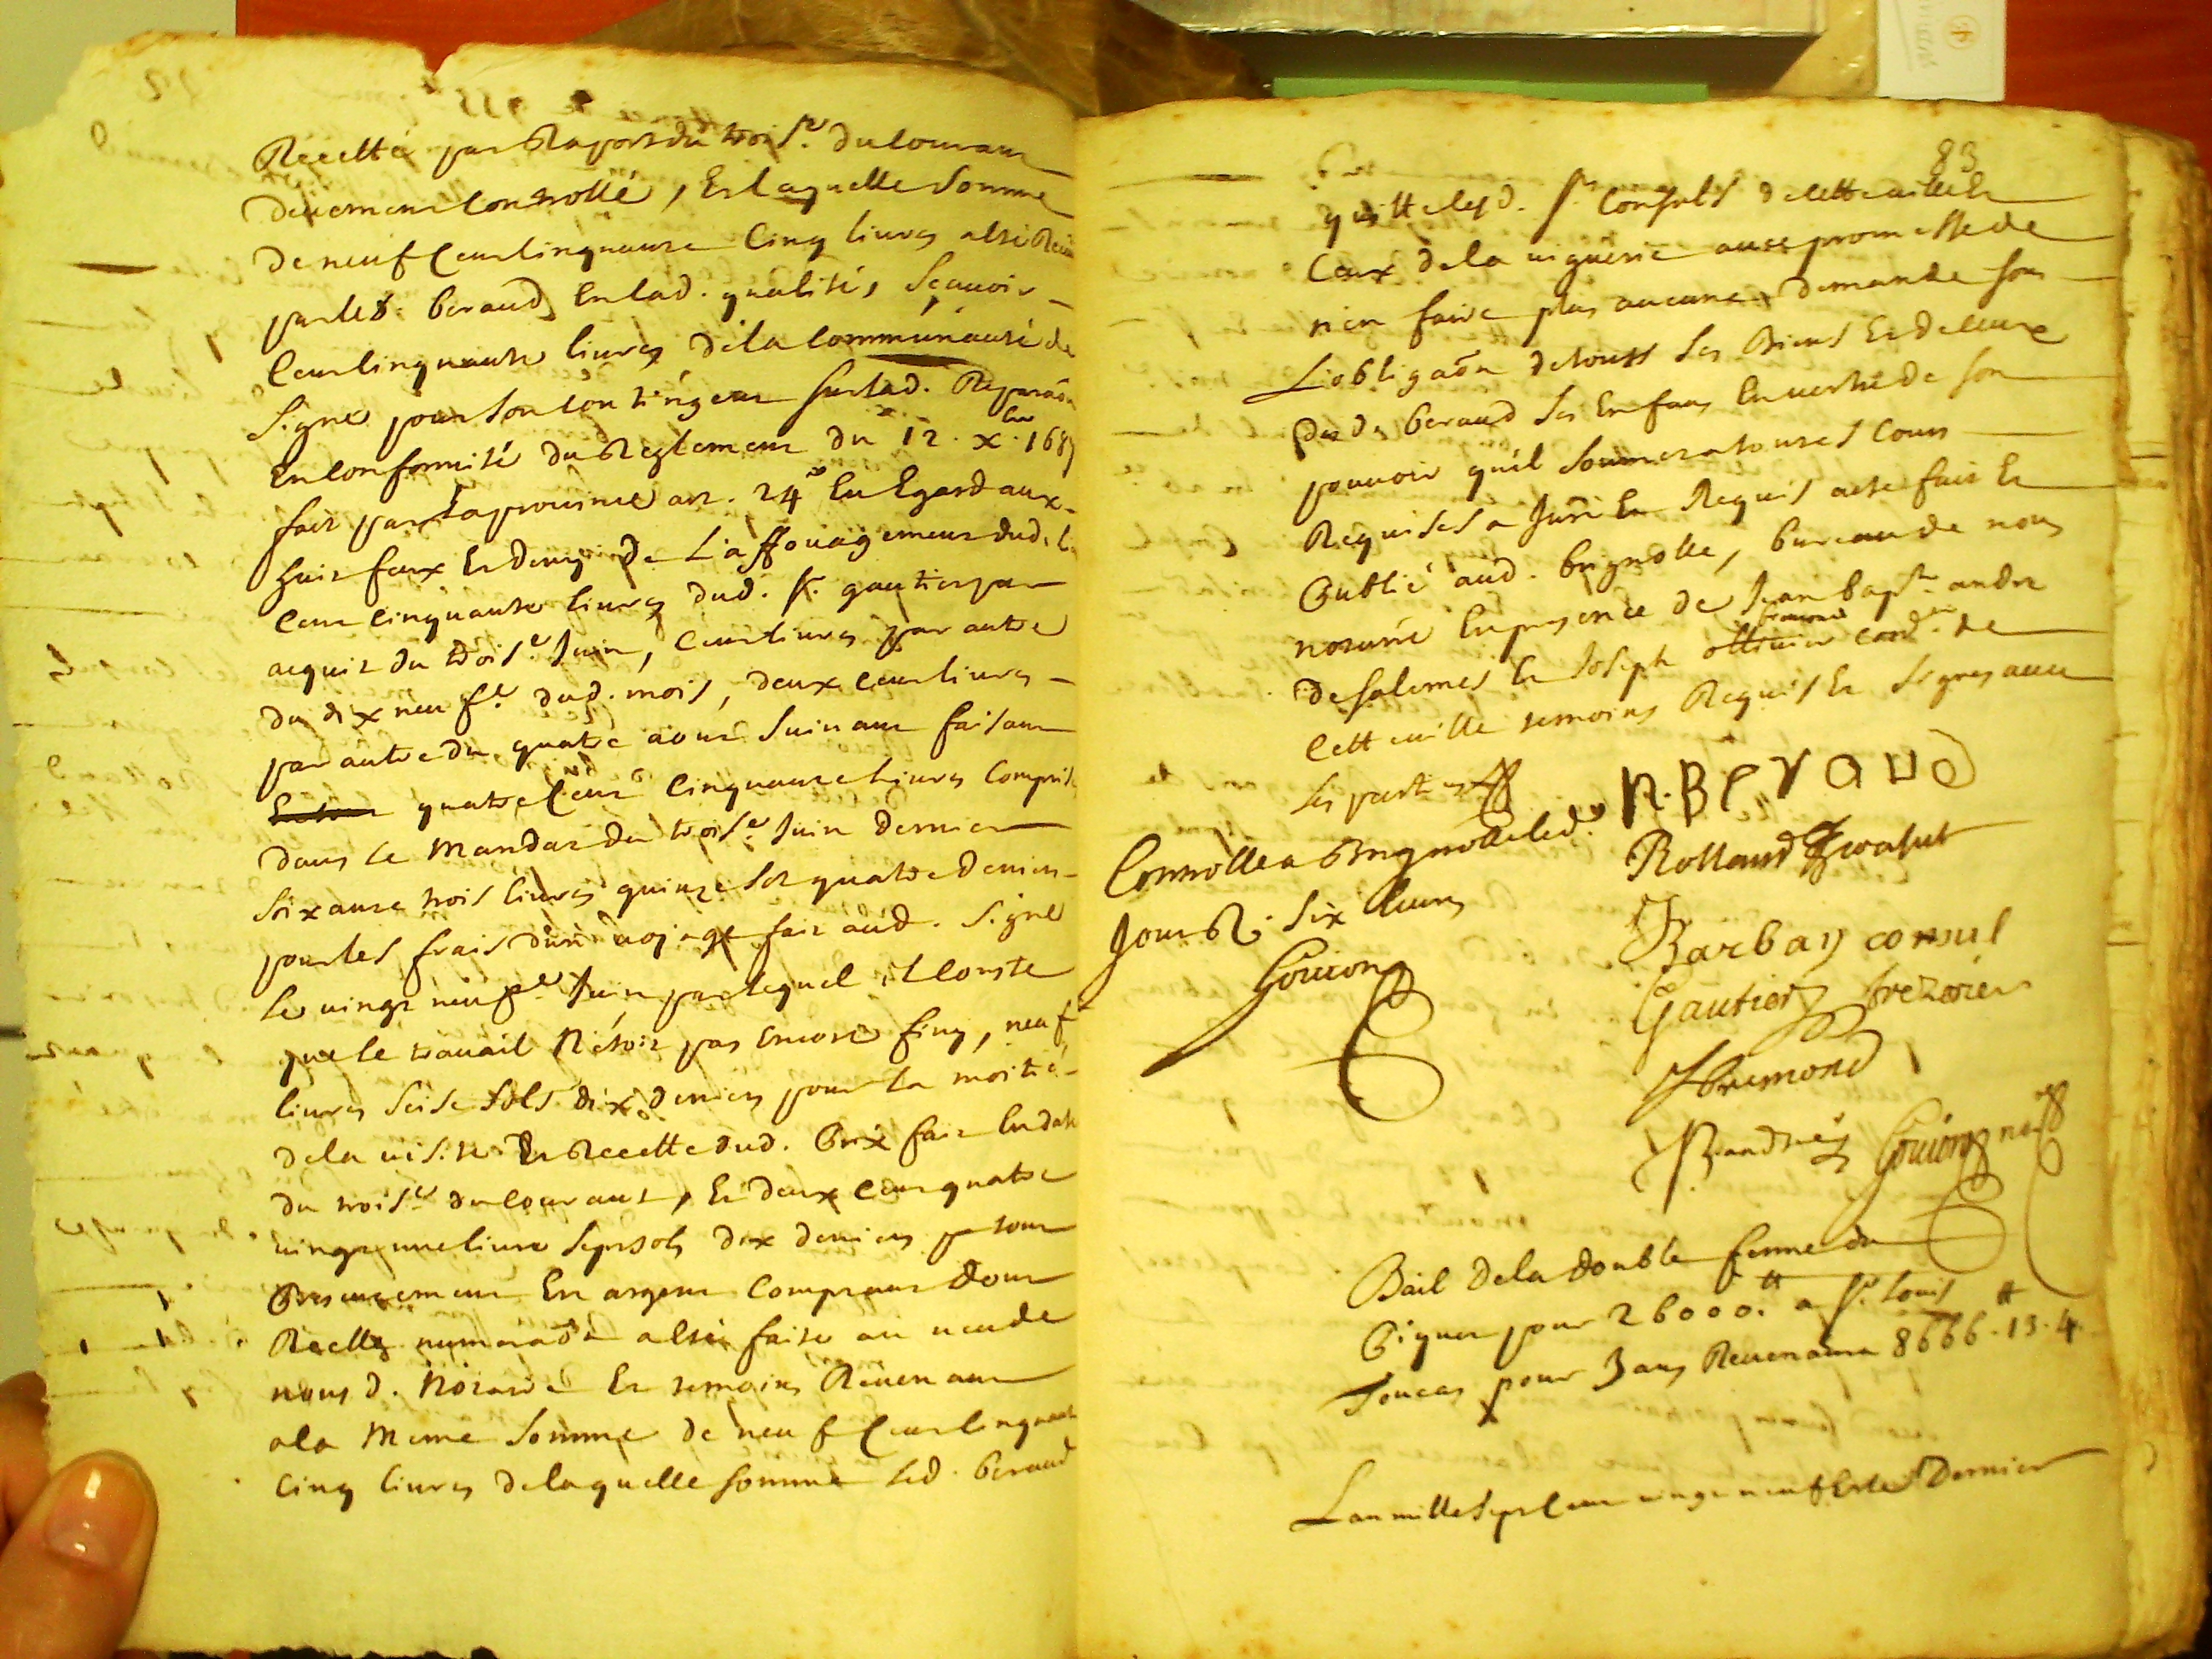 Recette par Raport du trois.e du Courant
deuement Controllé, Et laquelle Somme
de neuf Cent Cinquante Cinq livres a esté Receu
par led. beraud En lad. qualité, Scauoir
Cent Cinquante livres de la Communauté de
Signe pour Son Contingent sur lad. Reparaõn
En Conformité du Reglement du 12. x.bre 1687
fait par la province art. 24.e En Egard aux
huit feux Et demy de L'affouagement dud. 
Cent Cinquante livres dud. Sr. gautier par
acquit du trois.e Juin, Cent livres par autre
du dix neuf.e dud. mois, deux Cent livres
par autre du quatre aoust Suivant faisant
quatre Cent Cinquante livres Compris
dans Le Mandat du trois.e Juin dernier
Soixante trois livres quinze Sol quatre deniers
pour les frais d'un vojage fait aud. Signe
Le vingt neuf.e Juin par lequel il Conste
que le travail N'étoit pas Encore finy, neuf
livres Seise Sols dix deniers pour la moitié
de la visite Et Recette dud. Prix fait En date
du trois.e du Courant, Et deux Cent quatre
vingt une livre Sept sols dix deniers p.r tout
Presentement En argent Comptant dont
Reelle numeraõn a esté faite au veu de
nous d. Notaire Et temoins Revenant
a la Meme Somme de neuf Cent Cinquante
Cinq livres de laquelle Somme led. beraud
83
quitte lesd. Srs Consuls de cette ville Et
Ceux de la viguerie avec promesse de
n'en faire plus aucune demande sous
L'obligaõn de touts Ses Biens Et de Ceux
dud. beraud Ses Enfans En vertu de son
pouvoir qu'il Soumet a toutes Cours
Requises a Juré En Requis acte fait Et
Publié aud. brignolle, bureau de nous
notaire En presence de Jean bapt.e andré
de Solemes Et Joseph ollivier Cord.er de
Cette ville temoins Requis Et Signes avec
Les parties
n. BEraud
Controllé a Brignolle led.
Jour R. six livres
Gouiong
Rolland
Barbay consul
Gautier trezorier
J bremond
JB andré Gouiong not
Bail de la double ferme du
Piquet pour 26000.tt a Sr. Louis
Toucas pour 3 ans Revenant a 8666.tt 13. 4
L'an mille Sept Cent vingt neuf Et le Dernier